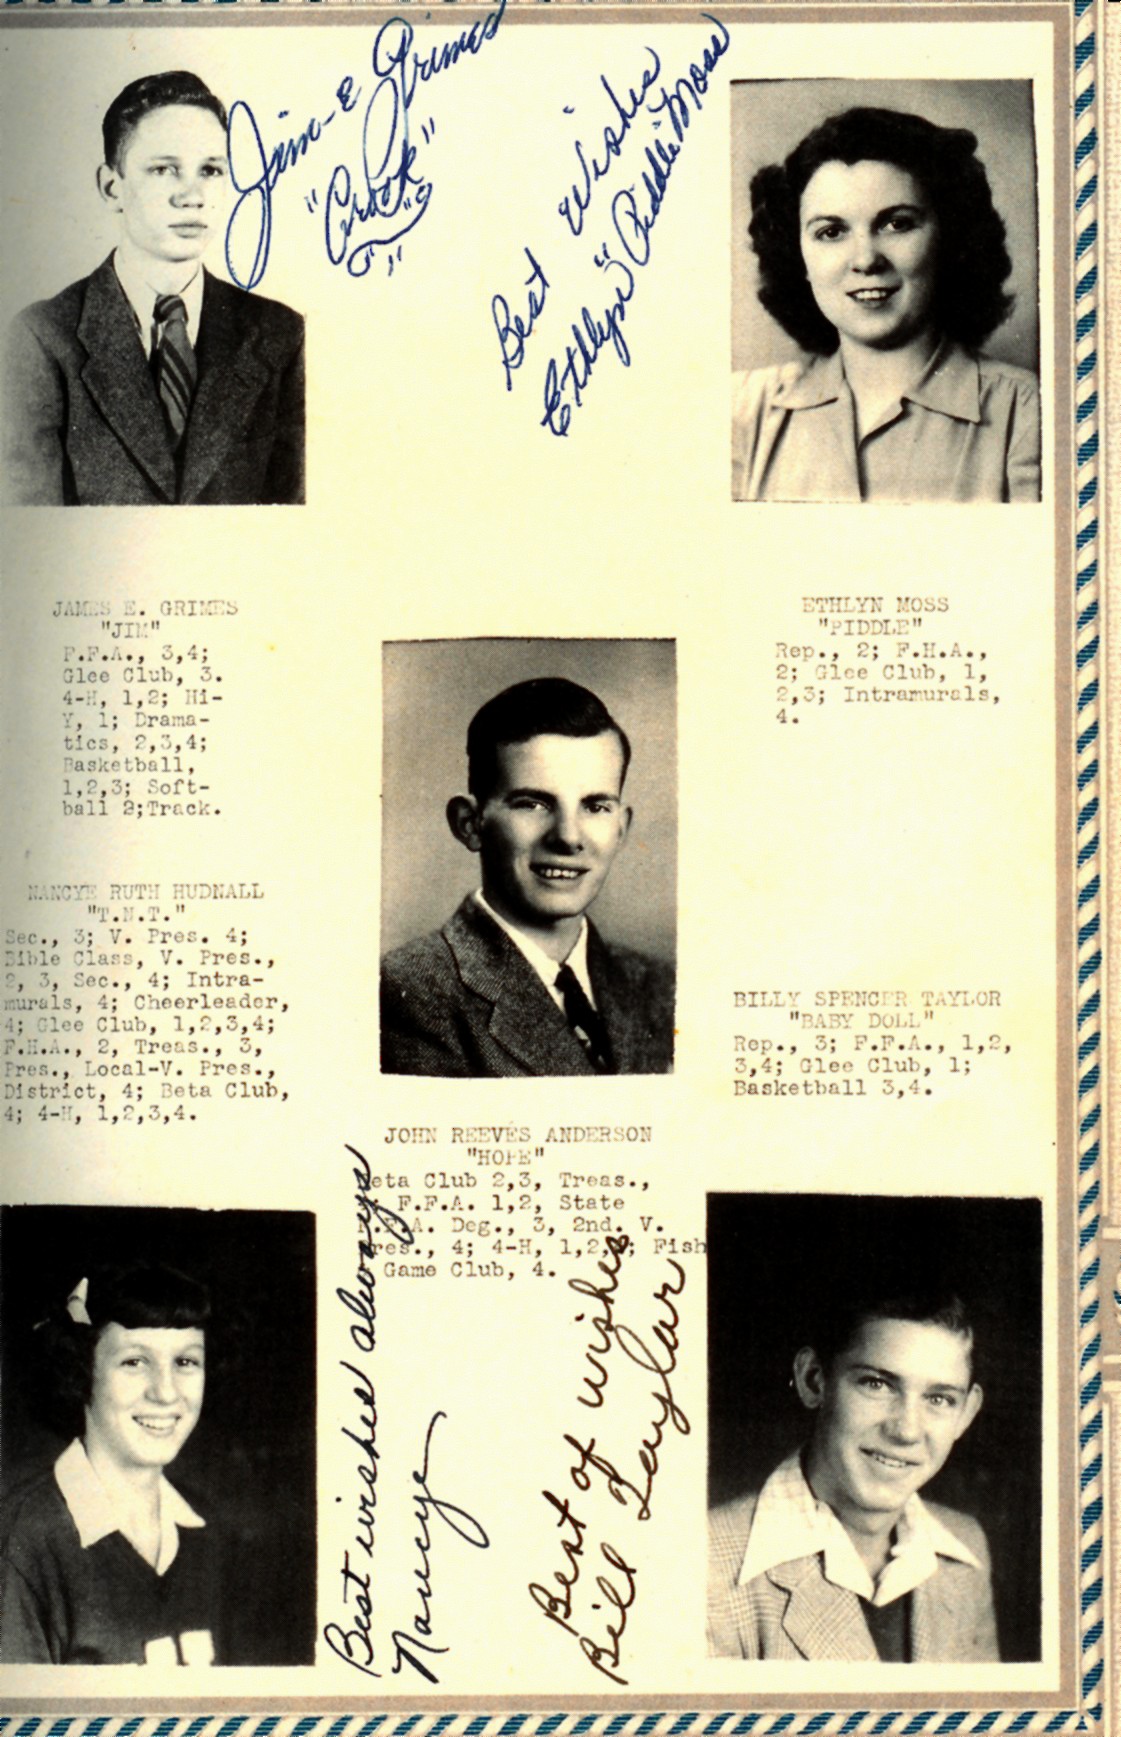 Jim-E Grimes
"Crick"
Best Wishes
Ethlyn "Piddle" Moss
JAMES E. GRIMES
"JIM"
F.F.A., 3,4;
Glee Club, 3.
4-H, 1,2; Hi-
Y, 1; Drama-
tics, 2,3,4;
Basketball,
1,2,3; Soft-
ball 2;Track.
ETHLYN MOSS
"PIDDLE"
Rep., 2; F.H.A.,
2; Glee Club, 1,
2,3; Intramurals,
4.
NANCYE RUTH HUDNALL
"T.N.T."
Sec., 3; V. Pres. 4;
Bible Class, V. Pres.,
2, 3, Sec., 4; Intra-
murals, 4; Cheerleader,
4; Glee Club, 1,2,3,4;
F.H.A., 2, Treas., 3,
Pres., Local-V. Pres.,
District, 4; Beta Club,
4; 4-H, 1,2,3,4.
BILLY SPENCER TAYLOR
"BABY DOLL"
Rep., 3; F.F.A., 1,2,
3,4; Glee Club, 1;
Basketball 3,4.
JOHN REEVES ANDERSON
"HOPE"
Beta Club 2,3, Treas.,
F.F.A. 1,2, State
F.F.A. Deg., 3, 2nd. V.
Pres., 4; 4-H, 1,2, ; Fish
Game Club, 4.
Best wishes always
Nancye
Best of wishes
Bill Taylor